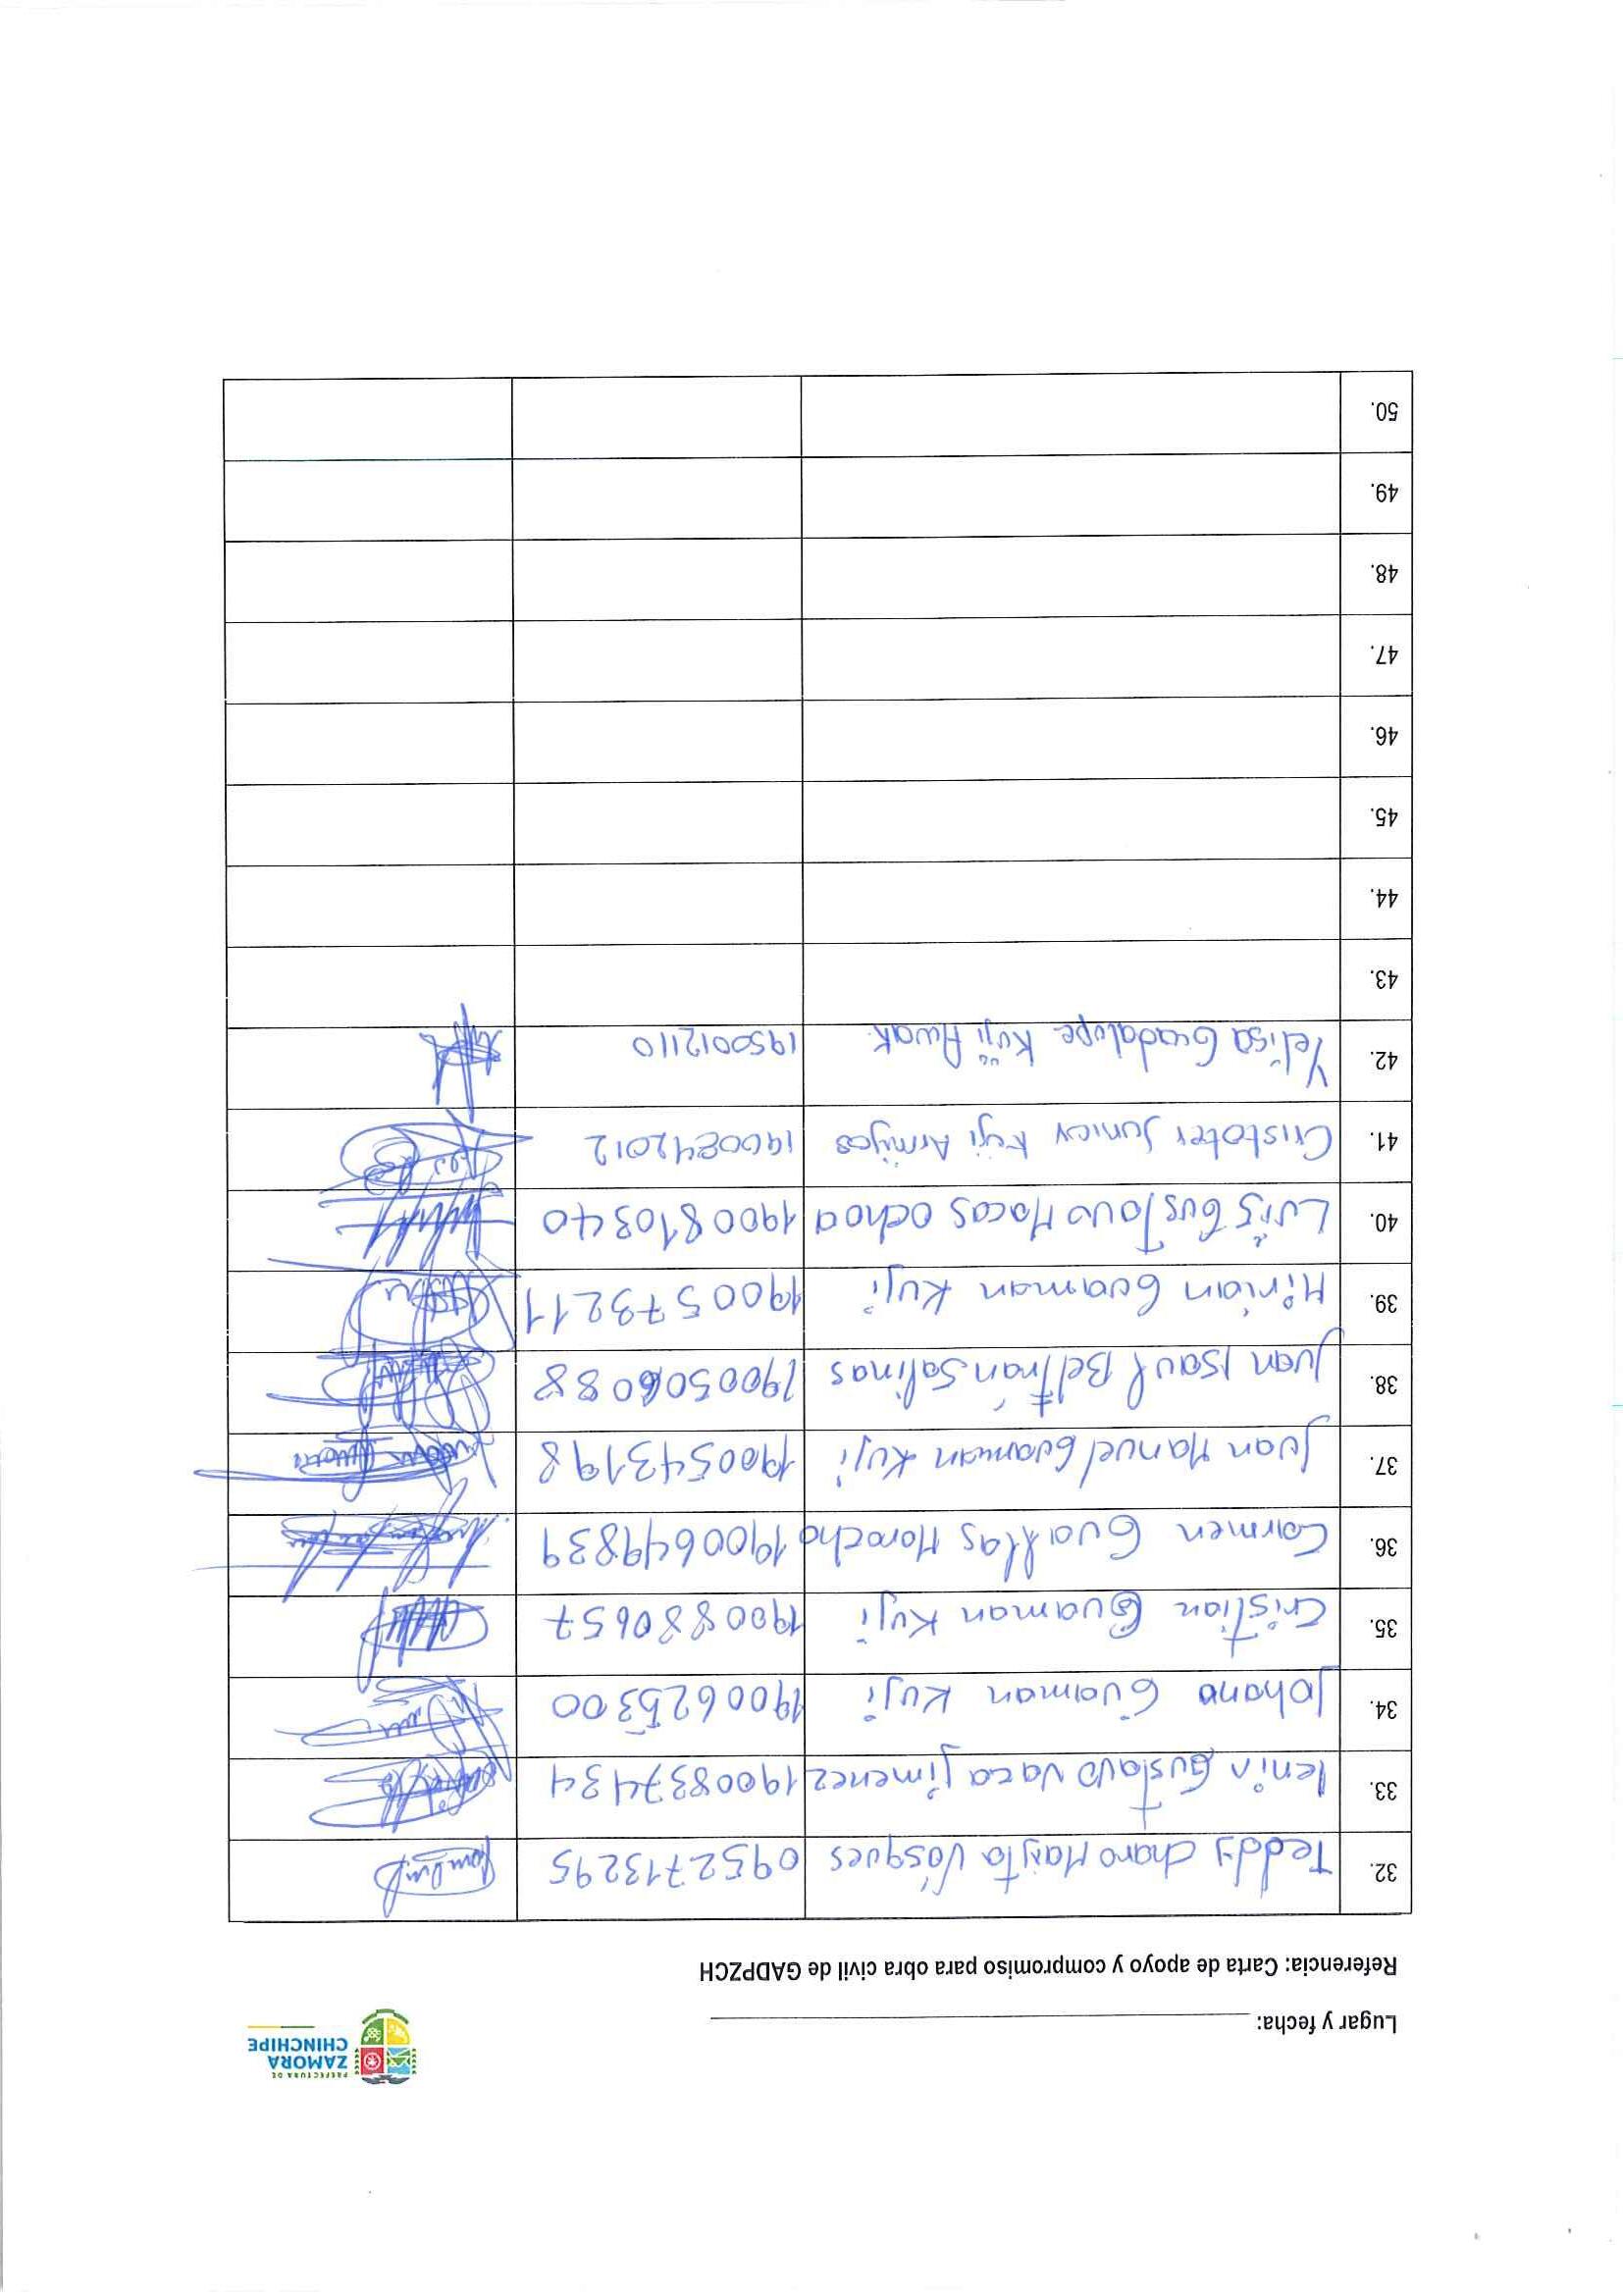 PREFECTURA DE
ZAMORA
CHINCHIPE
Lugar y fecha:
Referencia: Carta de apoyo y compromiso para obra civil de GADPZCH
32. Teddy Charo Mayta Vásques 0952713295
33. lenin Gustavo Vaca Jimenez 1900837434
34. Johana Guaman Kuji 1900625300
35. Cristian Guaman Kuji 1900880657
36. Carmen Guallas Morocho 1900649839
37. Juan Manuel Guaman Kuji 1900543198
38. Juan Isaul Beltrán Salinas 1900506088
39. Mirian Guaman Kuji 1900573211
40. Luis Gustavo Macas Ochoa 1900810340
41. Cristofer Junior Kuji Armijos 1900842012
42. Yelisa Guadalupe Kuji Awak 1950012110
43.
44.
45.
46.
47.
48.
49.
50.